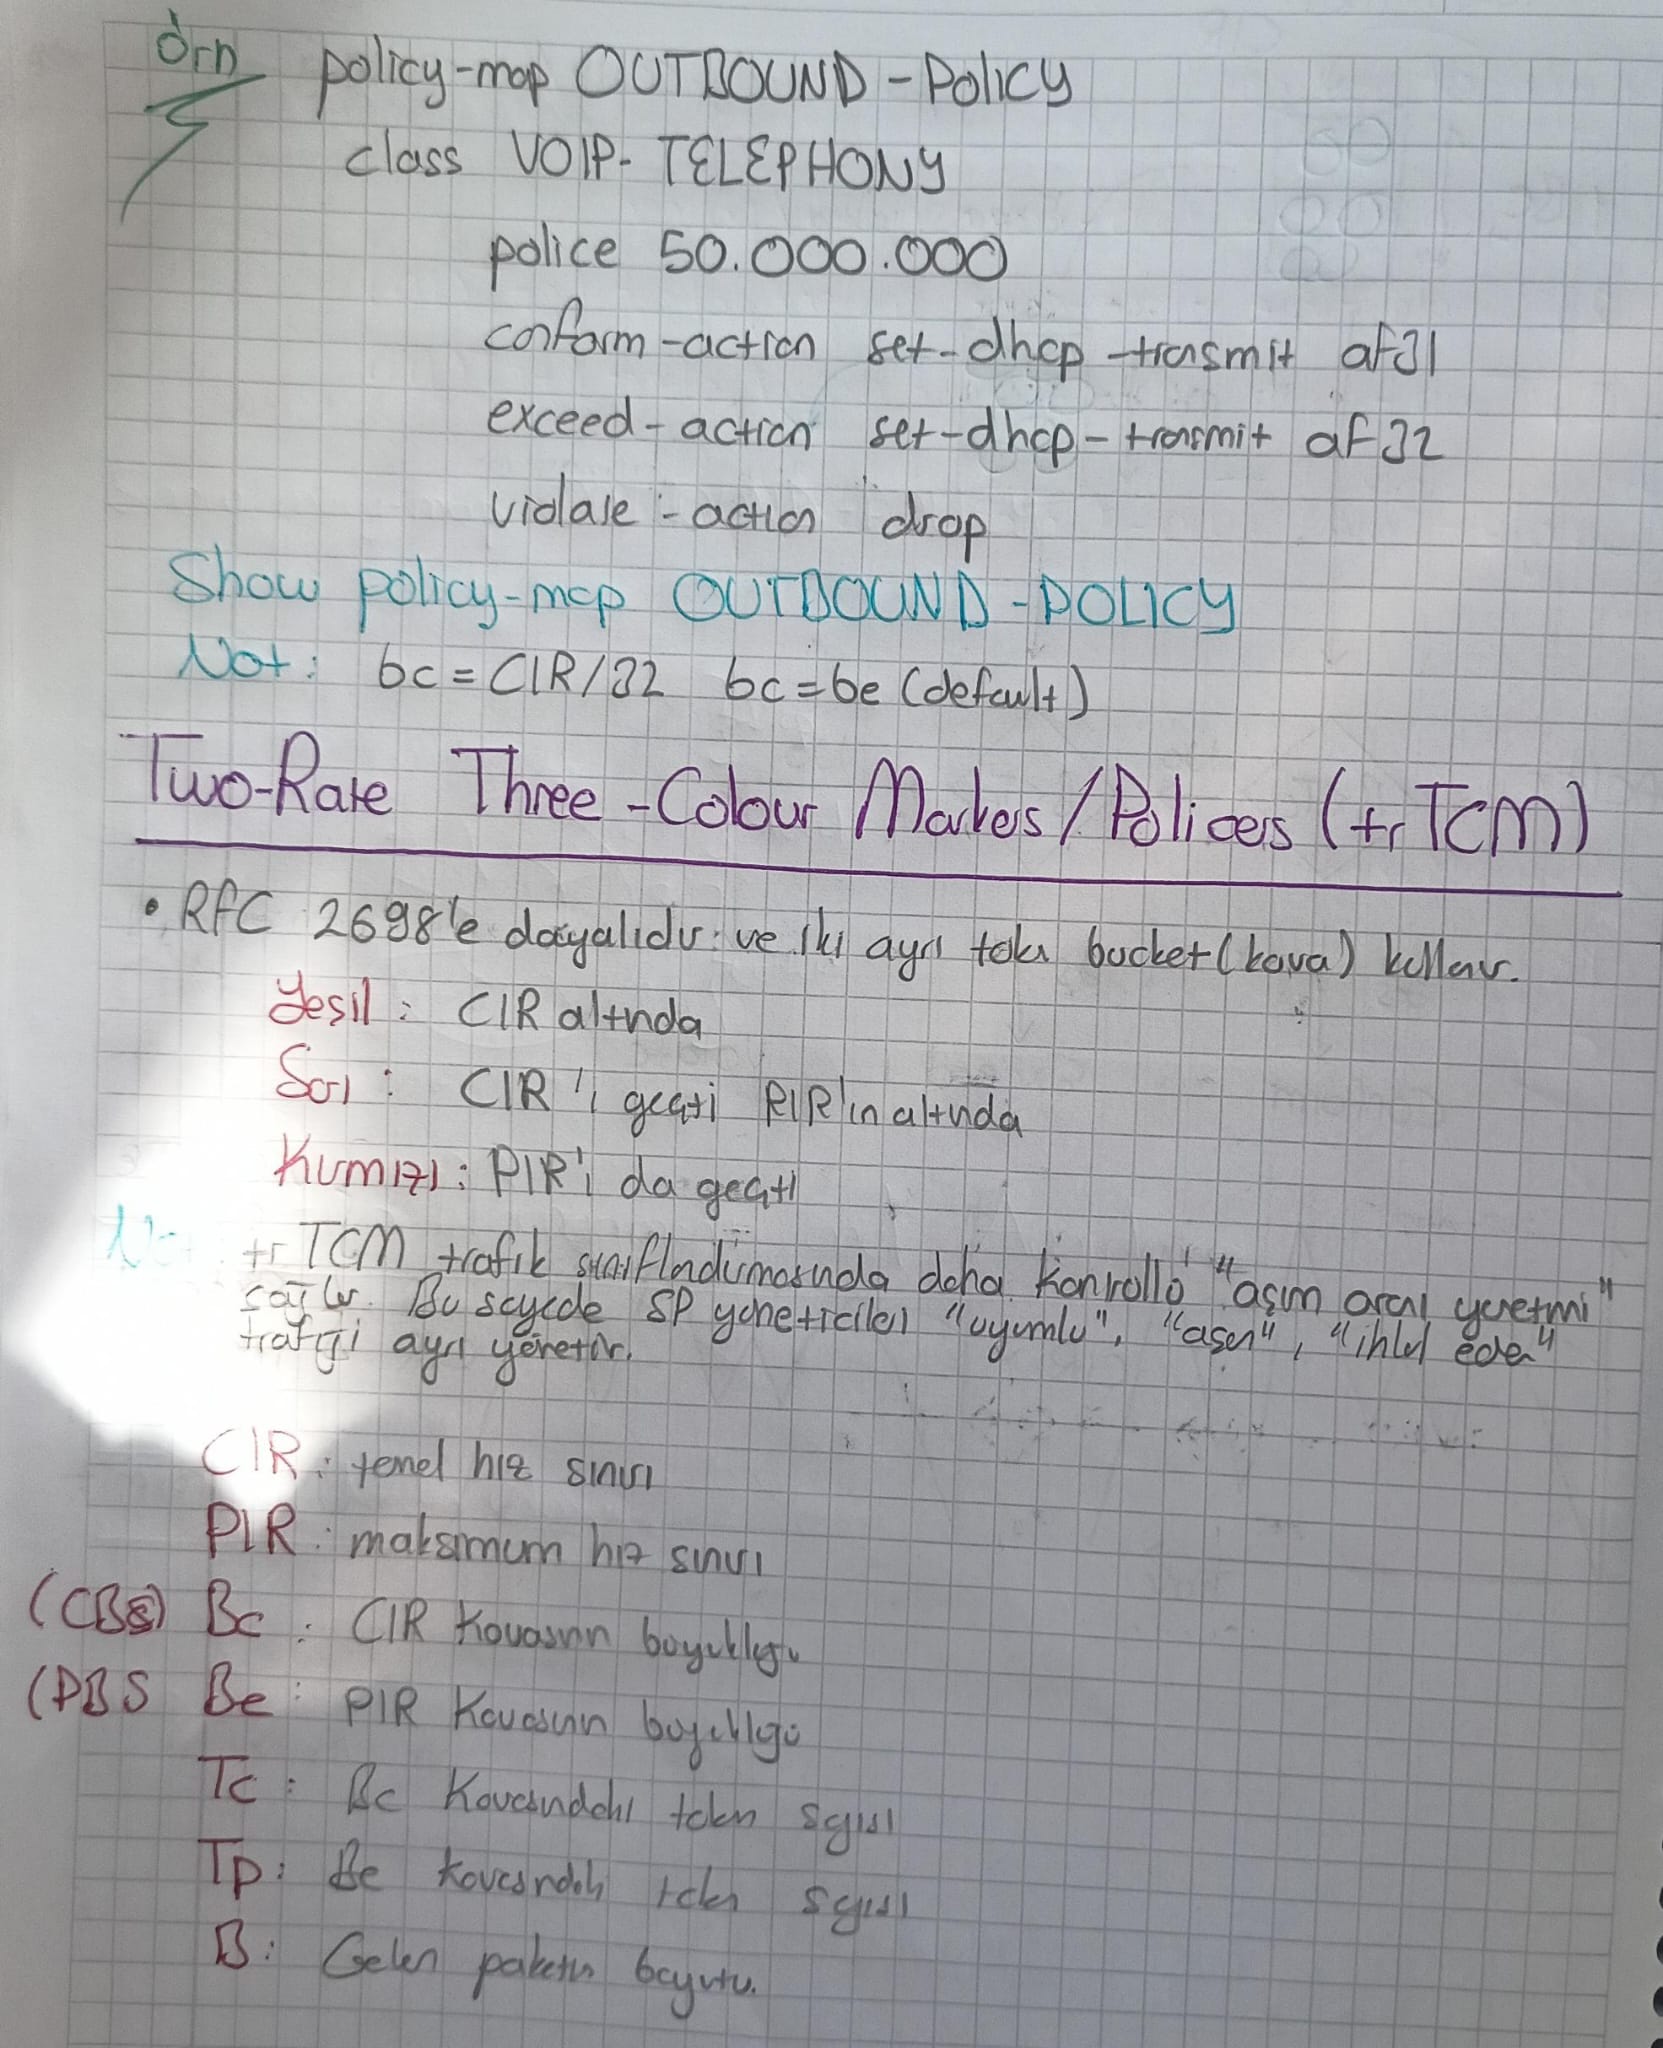 Örn policy-map OUTBOUND-Policy
class VOIP-TELEPHONY
police 50.000.000
conform-action set-dhcp-transmit af31
exceed-action set-dhcp-transmit af32
violate-action drop
Show policy-map OUTBOUND-POLICY
Not: bc = CIR/32 bc = be (default)
Two-Rate Three-Colour Markers/Policers (trTCM)
• RFC 2698'e dayalıdır ve iki ayrı token bucket (kova) kullanır.
Yeşil: CIR altında
Sarı: CIR'i geçti PIR'in altında
Kırmızı: PIR'i da geçti
Not: trTCM trafik sınıflandırmasında daha kontrollü "aşım aralığı yönetimi"
sağlar. Bu sayede SP yöneticileri "uyumlu", "aşan", "ihlal eden"
trafiği ayrı yönetir.
CIR: temel hız sınırı
PIR: maksimum hız sınırı
(CBS) Bc: CIR Kovasının büyüklüğü
(PBS Be: PIR Kovasının büyüklüğü
Tc: Bc Kovasındaki token sayısı
Tp: Be kovasındaki token sayısı
B: Gelen paketin boyutu.